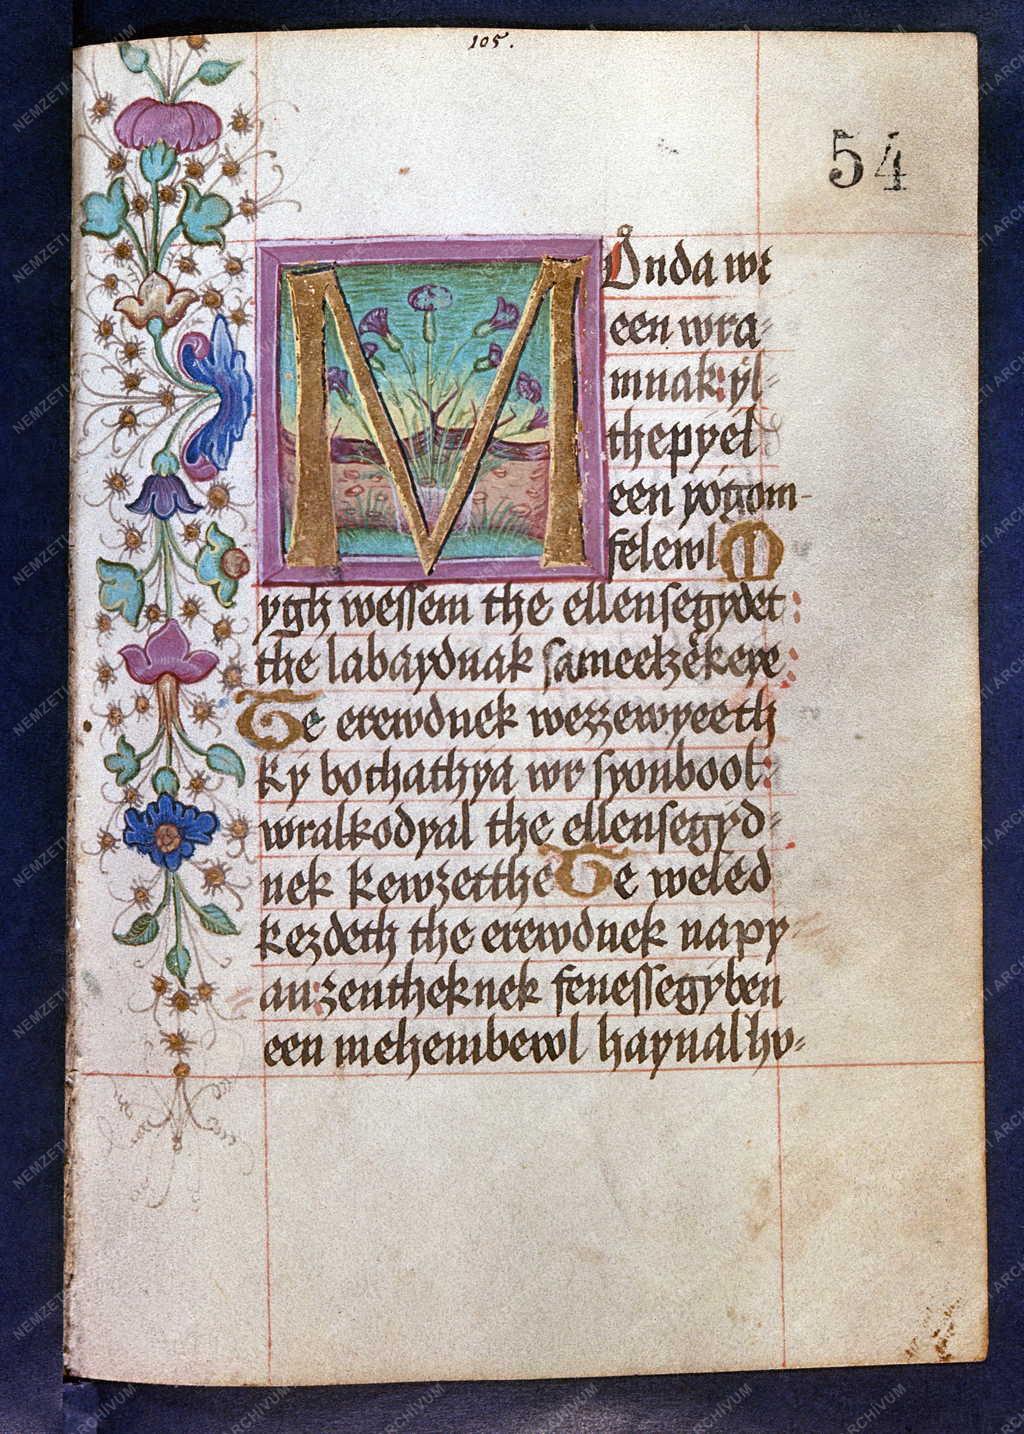 105.
54
MOnda wr
een wra⸗
mnak: yl⸗
thepyel
een yogom-
felewl M
ygh wessem the ellensegydet:
the labaydnak sameelzekeye:
Te erewdnek wezzewyeeth
ky bochathya wr syonbool:
wralkodyal the ellensegyd⸗
nek kewzetthe Te weled
kezdeth the erewdnek napy
anzentheknek fenessegyben
een mehembewl haynalhv⸗
NEMZETI ARCHIVUM